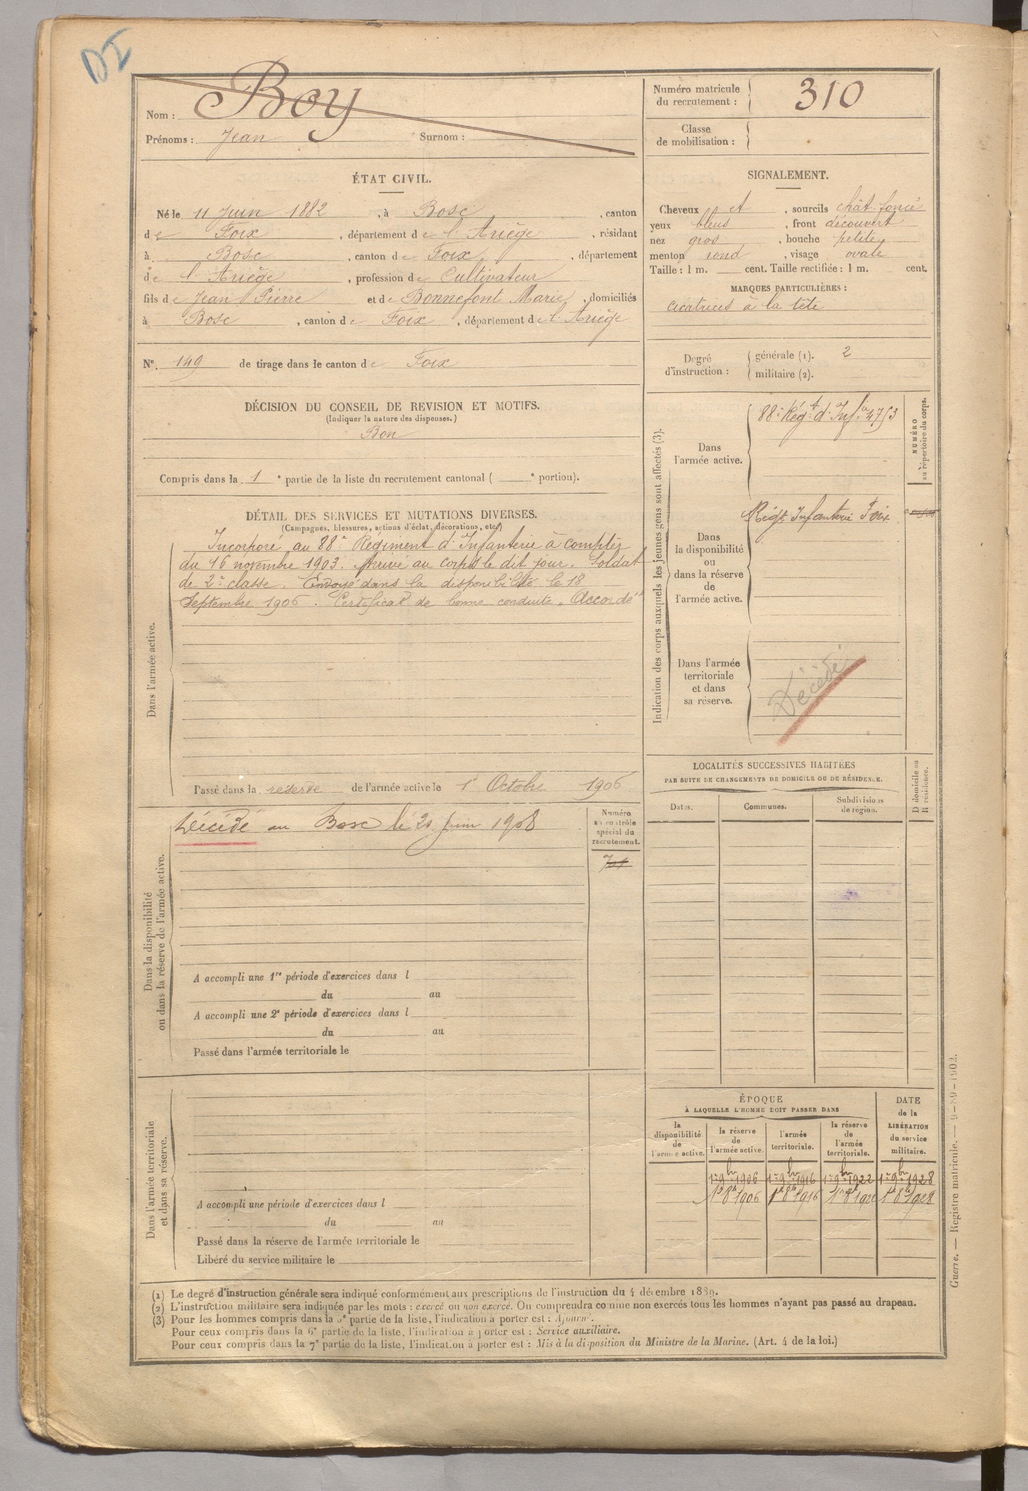 DI
Nom : Boy
Prénoms : Jean Surnom :
Numéro matricule du recrutement : 310
Classe de mobilisation :
ÉTAT CIVIL.
Né le 11 Juin 1882, à Bosc, canton
de Foix, département de l'Ariège, résidant
à Bosc, canton de Foix, département
de l'Ariège, profession de Cultivateur
fils de Jean Pierre et de Bonnefont Marie, domiciliés
à Bosc, canton de Foix, département de l'Ariège
N° 149 de tirage dans le canton de Foix
SIGNALEMENT.
Cheveux et, sourcils chât foncé
yeux bleus, front découvert
nez gros, bouche petite,
menton rond, visage ovale
Taille : 1 m. cent. Taille rectifiée : 1 m. cent.
MARQUES PARTICULIÈRES :
cicatrices à la tête
Degré d'instruction : générale (1). 2
militaire (2).
DÉCISION DU CONSEIL DE REVISION ET MOTIFS.
(Indiquer la nature des dispenses.)
Bon
Compris dans la 1e partie de la liste du recrutement cantonal ( e portion).
DÉTAIL DES SERVICES ET MUTATIONS DIVERSES.
(Campagnes, blessures, actions d'éclat, décorations, etc.)
Dans l'armée active.
Incorporé au 88e Régiment d'Infanterie à compter
du 16 novembre 1903. Arrivé au corps le dit jour. Soldat
de 2e classe. Envoyé dans la disponibilité le 18
Septembre 1906. Certificat de bonne conduite "Accordé"
Passé dans la réserve de l'armée active le 1r Octobre 1906
Dans la disponibilité ou dans la réserve de l'armée active.
Décédé au Bosc le 20 Juin 1908
Numéro au contrôle spécial du recrutement.
A accompli une 1re période d'exercices dans l
du au
A accompli une 2e période d'exercices dans l
du au
Passé dans l'armée territoriale le
Dans l'armée territoriale et dans sa réserve.
A accompli une période d'exercices dans l
du au
Passé dans la réserve de l'armée territoriale le
Libéré du service militaire le
Indication des corps auxquels les jeunes gens sont affectés (3).
NUMÉRO au répertoire du corps.
Dans l'armée active.
88e Régt d'Infie 4753
Dans la disponibilité ou dans la réserve de l'armée active.
Régt Infanterie Foix
Dans l'armée territoriale et dans sa réserve.
Décédé
LOCALITÉS SUCCESSIVES HABITÉES
PAR SUITE DE CHANGEMENTS DE DOMICILE OU DE RÉSIDENCE.
Dates. Communes. Subdivisions de région. D domicile ou R résidence.
ÉPOQUE
À LAQUELLE L'HOMME DOIT PASSER DANS
la disponibilité de l'armée active. la réserve de l'armée active. l'armée territoriale. la réserve de l'armée territoriale.
DATE de la LIBÉRATION du service militaire.
1r 9bre 1906 1r 9bre 1916 1r 9bre 1922 1r 9bre 1928
1r 8bre 1906 1r 8bre 1916 1r 8bre 1922 1r 8bre 1928
(1) Le degré d'instruction générale sera indiqué conformément aux prescriptions de l'instruction du 4 décembre 1889.
(2) L'instruction militaire sera indiquée par les mots : exercé ou non exercé. On comprendra comme non exercés tous les hommes n'ayant pas passé au drapeau.
(3) Pour les hommes compris dans la 5e partie de la liste, l'indication à porter est : Ajourné.
Pour ceux compris dans la 6e partie de la liste, l'indication à porter est : Service auxiliaire.
Pour ceux compris dans la 7e partie de la liste, l'indication à porter est : Mis à la disposition du Ministre de la Marine. (Art. 4 de la loi.)
Guerre. — Registre matricule. — 9-89-1902.